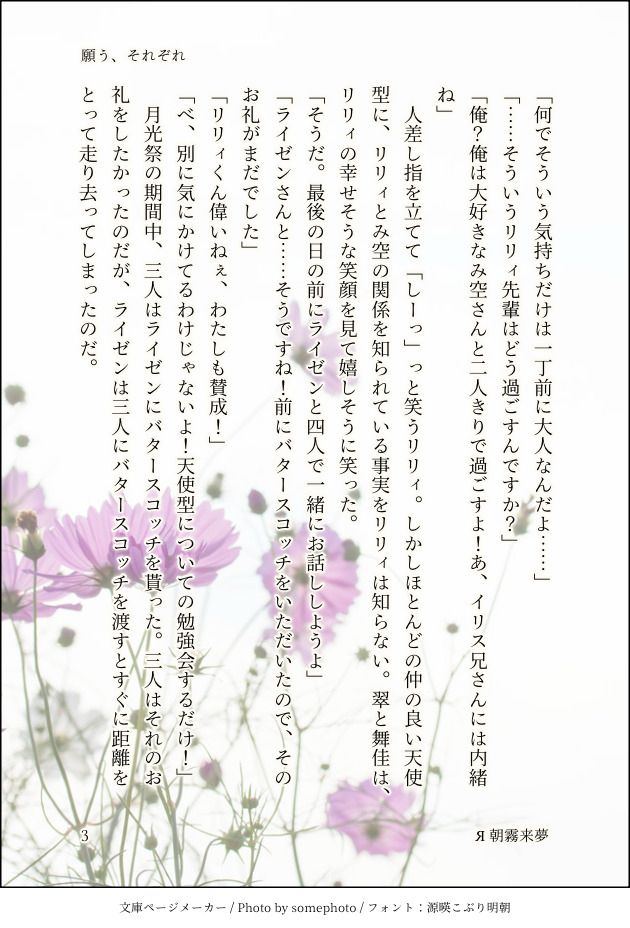 願う、それぞれ
「何でそういう気持ちだけは一丁前に大人なんだよ……」
「……そういうリリィ先輩はどう過ごすんですか？」
「俺？俺は大好きなみ空さんと二人きりで過ごすよ！あ、イリス兄さんには内緒
ね」
　人差し指を立てて「しーっ」っと笑うリリィ。しかしほとんどの仲の良い天使
型に、リリィとみ空の関係を知られている事実をリリィは知らない。翠と舞佳は、
リリィの幸せそうな笑顔を見て嬉しそうに笑った。
「そうだ。最後の日の前にライゼンと四人で一緒にお話ししようよ」
「ライゼンさんと……そうですね！前にバタースコッチをいただいたので、その
お礼がまだでした」
「リリィくん偉いねぇ、わたしも賛成！」
「べ、別に気にかけてるわけじゃないよ！天使型についての勉強会するだけ！」
　月光祭の期間中、三人はライゼンにバタースコッチを貰った。三人はそれのお
礼をしたかったのだが、ライゼンは三人にバタースコッチを渡すとすぐに距離を
とって走り去ってしまったのだ。
3
Я 朝霧来夢
文庫ページメーカー / Photo by somephoto / フォント：源暎こぶり明朝